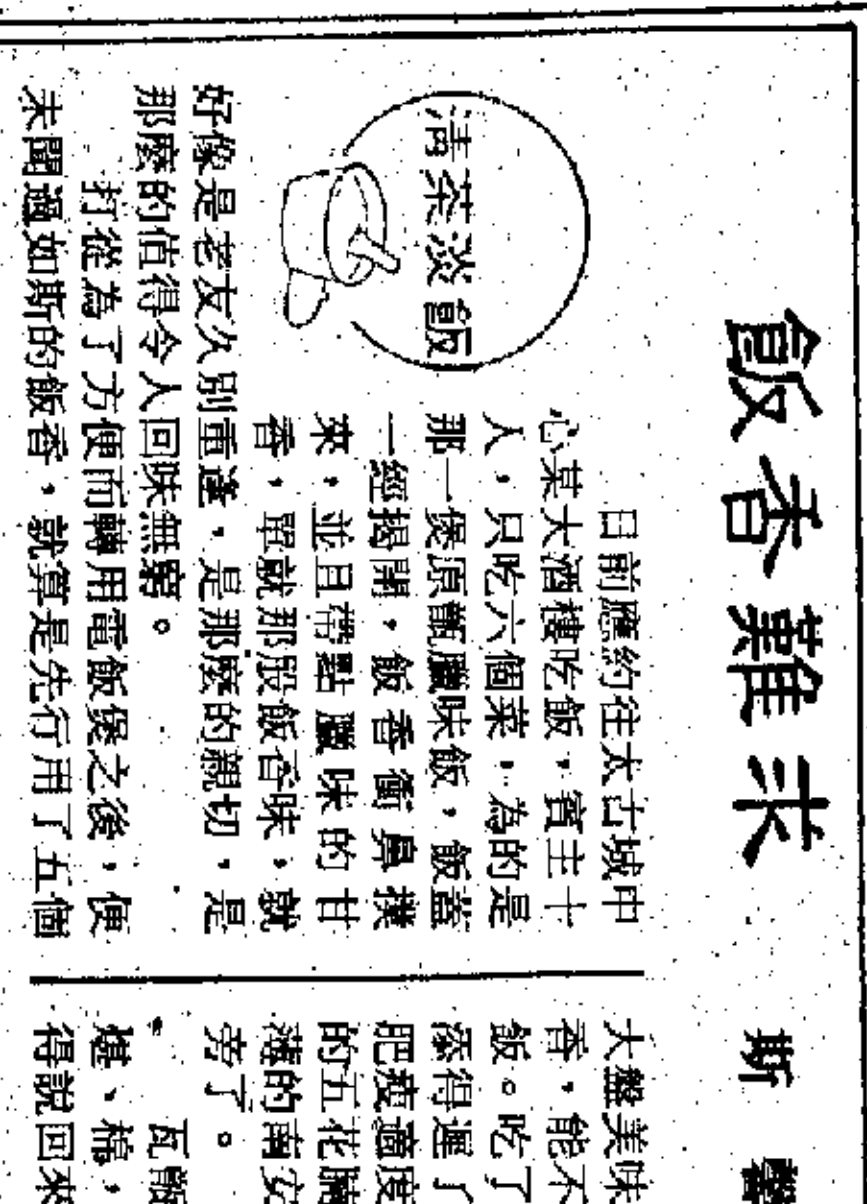 飯香難求
斯馨
清茶淡飯
日前應約往太古城中
心某大酒樓吃飯，賓主十
人，只吃六個菜，為的是
那一煲原甑臘味飯，飯蓋
一經揭開，飯香衝鼻撲
來，並且帶點臘味的甘
香，單就那股飯香味，就
好像是老友久別重逢，是那麼的親切，是
那麼的值得令人回味無窮。
打從為了方便而轉用電飯煲之後，便
未聞過如斯的飯香，就算是先行用了五個
大盤美味
香，能不
飯。吃了
添得遲了
肥瘦適度
的五花腩
薄的南安
旁了。
瓦甑
煁、稿，
得說回來